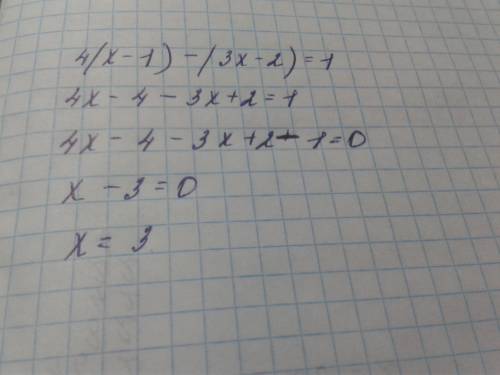 4(x-1)-(3x-2)=1
4x-4-3x+2=1
4x-4-3x+2-1=0
x-3=0
x=3